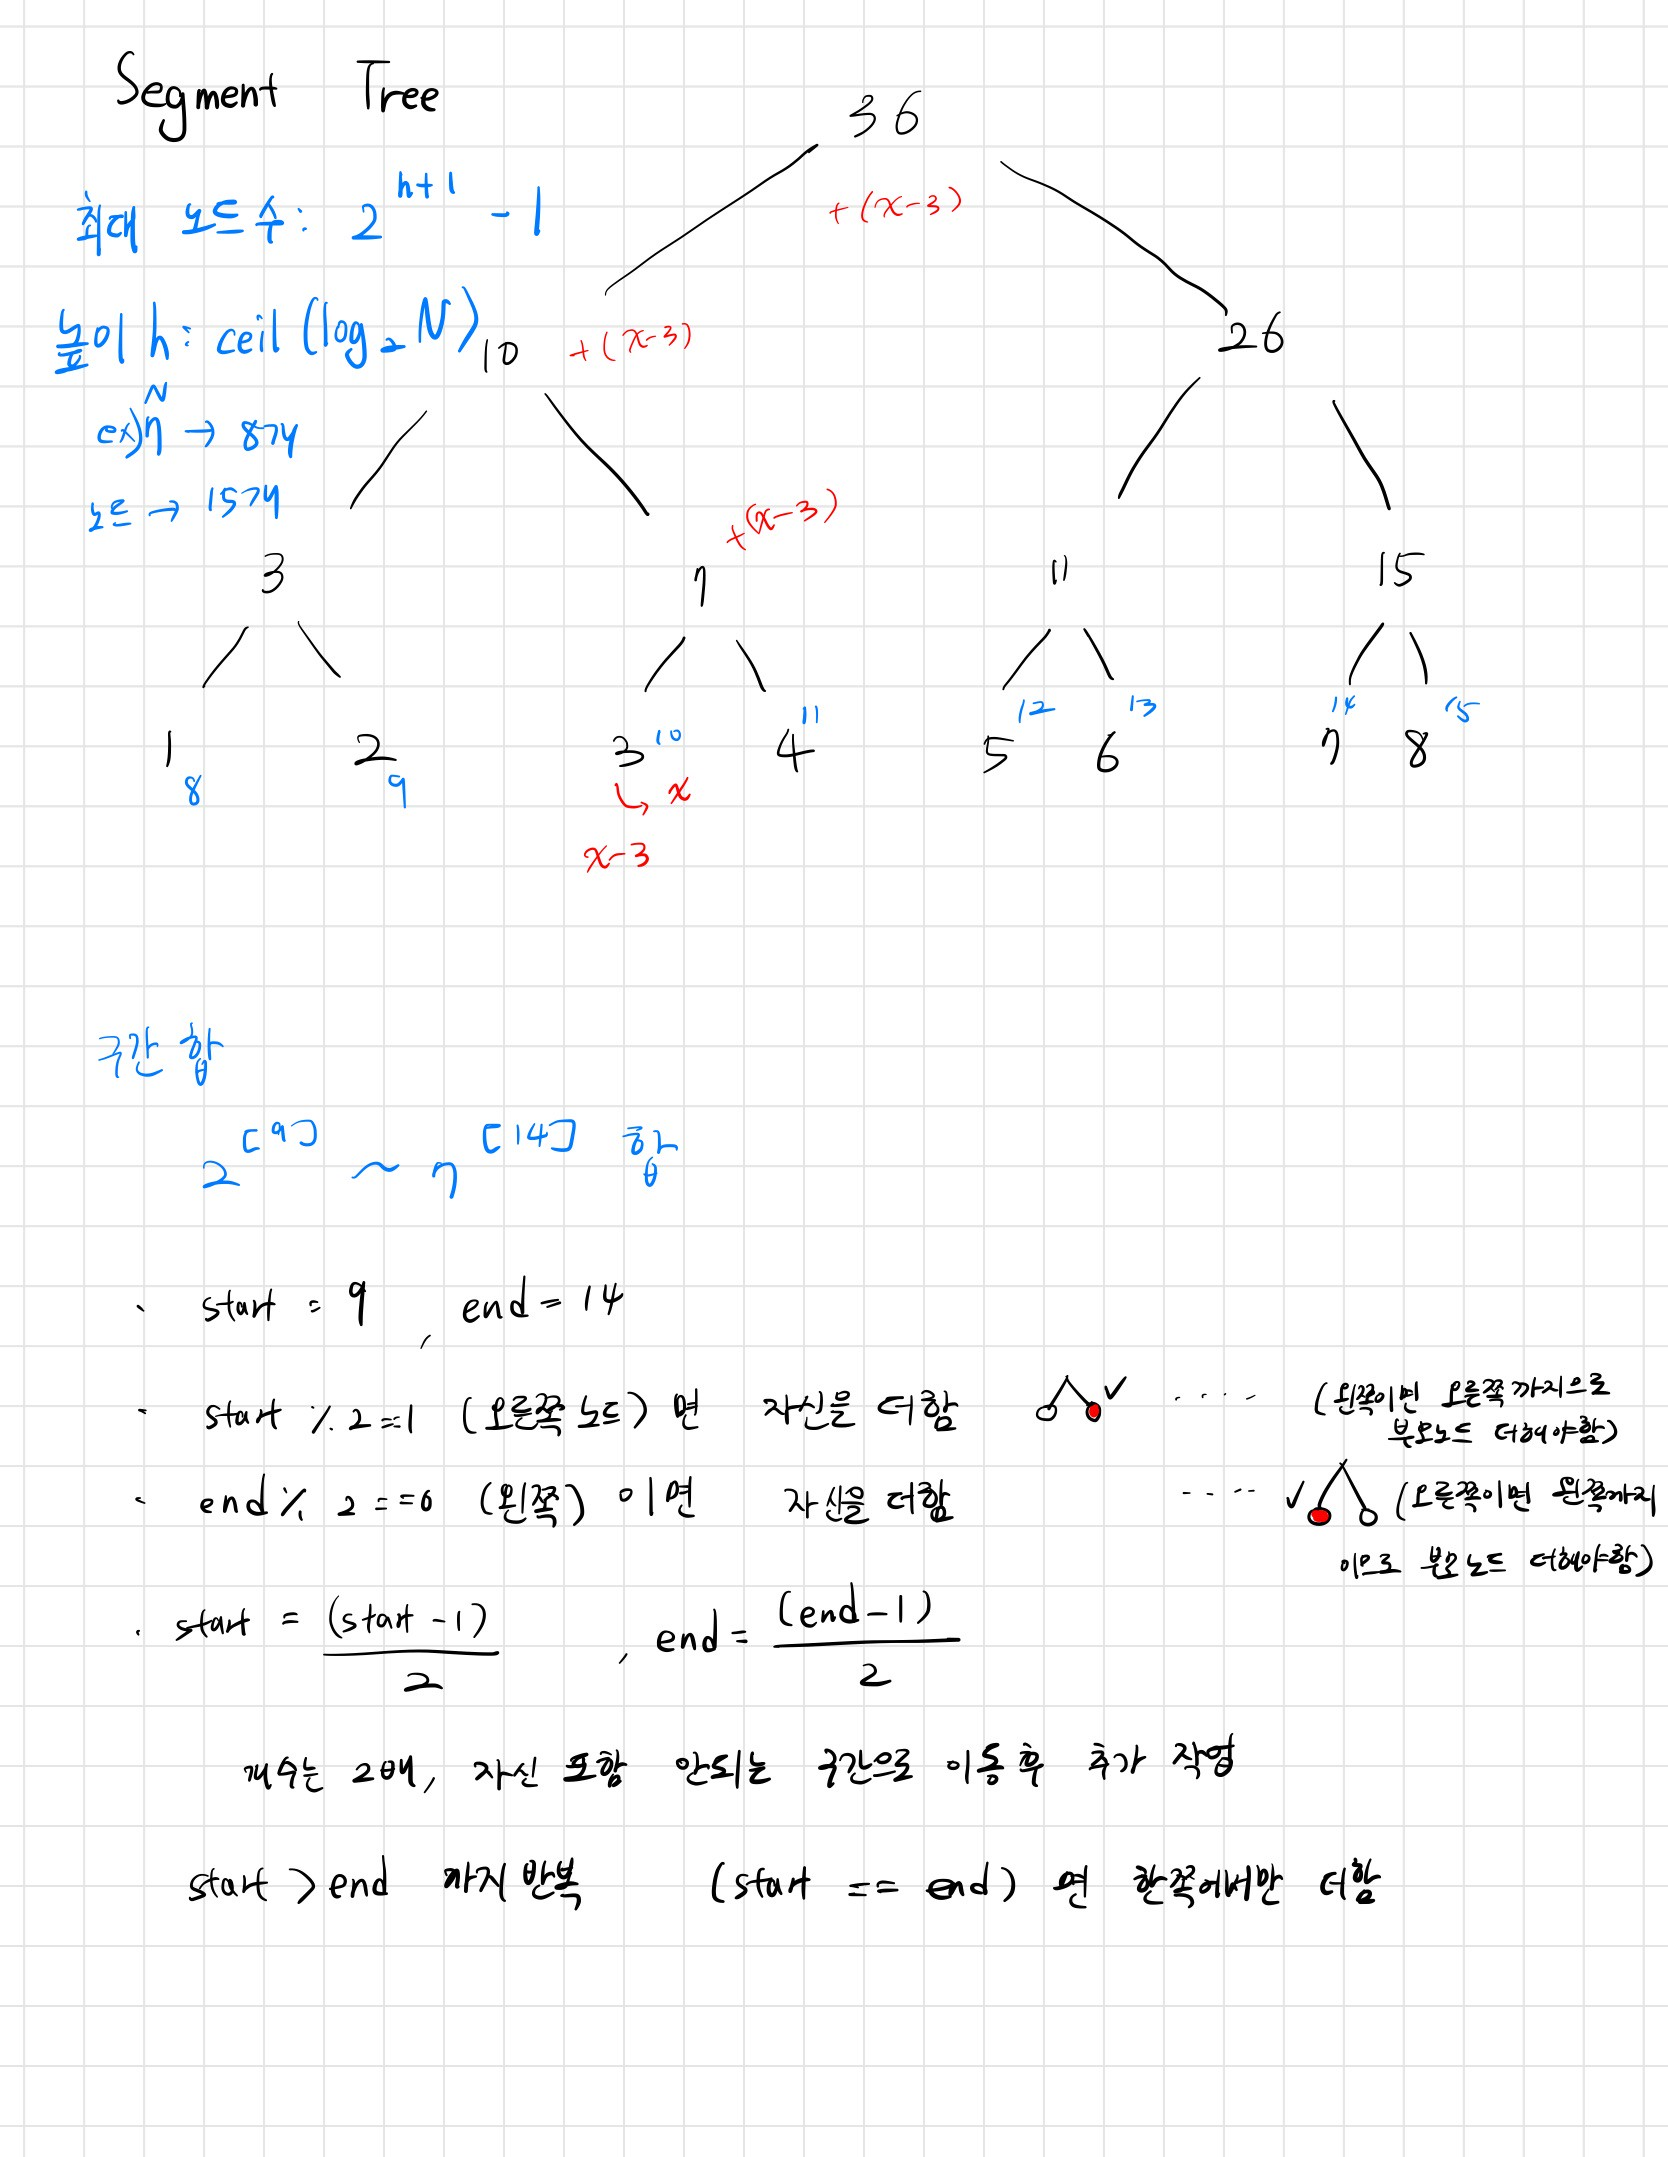 Segment Tree
36
최대 노드수: 2^{h+1} - 1
+(x-3)
높이 h: ceil (log₂N)
10 +(x-3) 26
N
ex) n → 8개
노드 → 15개
+(x-3)
3 7 11 15
12 13 14 15
10 11
1 2 3 4 5 6 7 8
8 9 ↳ x
x-3
구간 합
2^{[9]} ~ 7^{[14]} 합
· start = 9 , end = 14
· start % 2 ==1 (오른쪽 노드) 면 자신을 더함 ✓ ···· (왼쪽이면 오른쪽 까지으로
부모노드 더해야함)
· end % 2 ==0 (왼쪽) 이면 자신을 더함 ---- ✓ (오른쪽이면 왼쪽까지
이므로 부모노드 더해야함)
· start = (start -1)/2 , end = (end-1)/2
개수는 2배, 자신 포함 안되는 구간으로 이동 후 추가 작업
start > end 까지 반복 (start == end) 면 한쪽에서만 더함